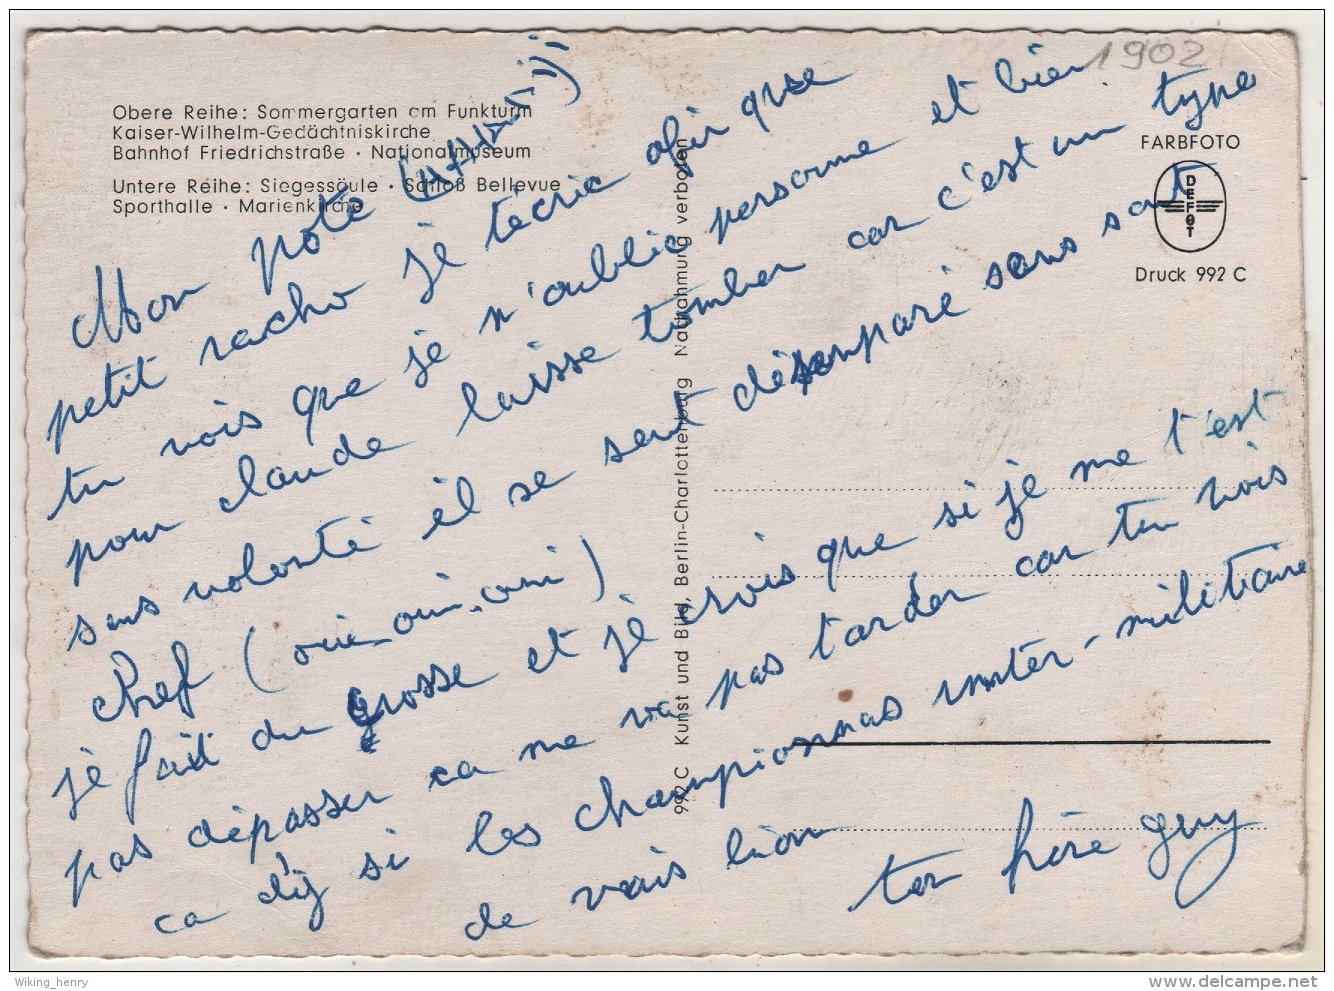 1902
Obere Reihe: Sommergarten am Funkturm
Kaiser-Wilhelm-Gedächtniskirche
Bahnhof Friedrichstraße · Nationalmuseum
Untere Reihe: Siegessäule · Schloß Bellevue
Sporthalle · Marienkirche
FARBFOTO
DEFOT
Druck 992 C
992 C Kunst und Bild, Berlin-Charlottenburg Nachahmung verboten
Mon pote
petit racho je técrie afin que
tu vois que je n'oublie personne et bien
pour claude laisse tomber car c'est un type
sens volonté il se sent désemparé sans sont
chef (oui, oui, oui)
je fait du grosse et je crois que si je me t'est
pas dépasser ca me va pas tarder car tu vois
ca dij si les championnas inter-militaire
de vais
ton frère guy
Wiking_henry
delcampe.net